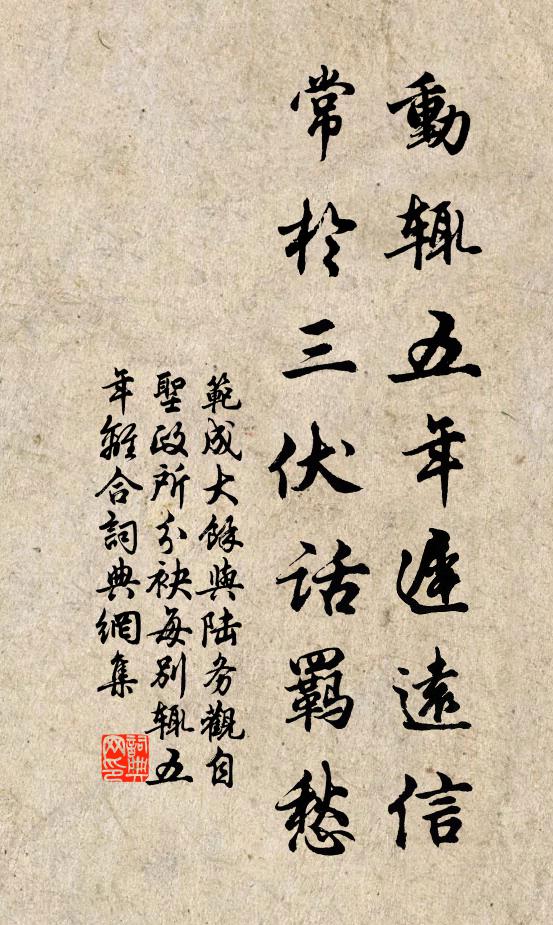 動辄五年遲遠信
常於三伏話羈愁
範成大餘與陆务觀自
聖政所分袂每别辄五
年離合詞典網集
詞典网印